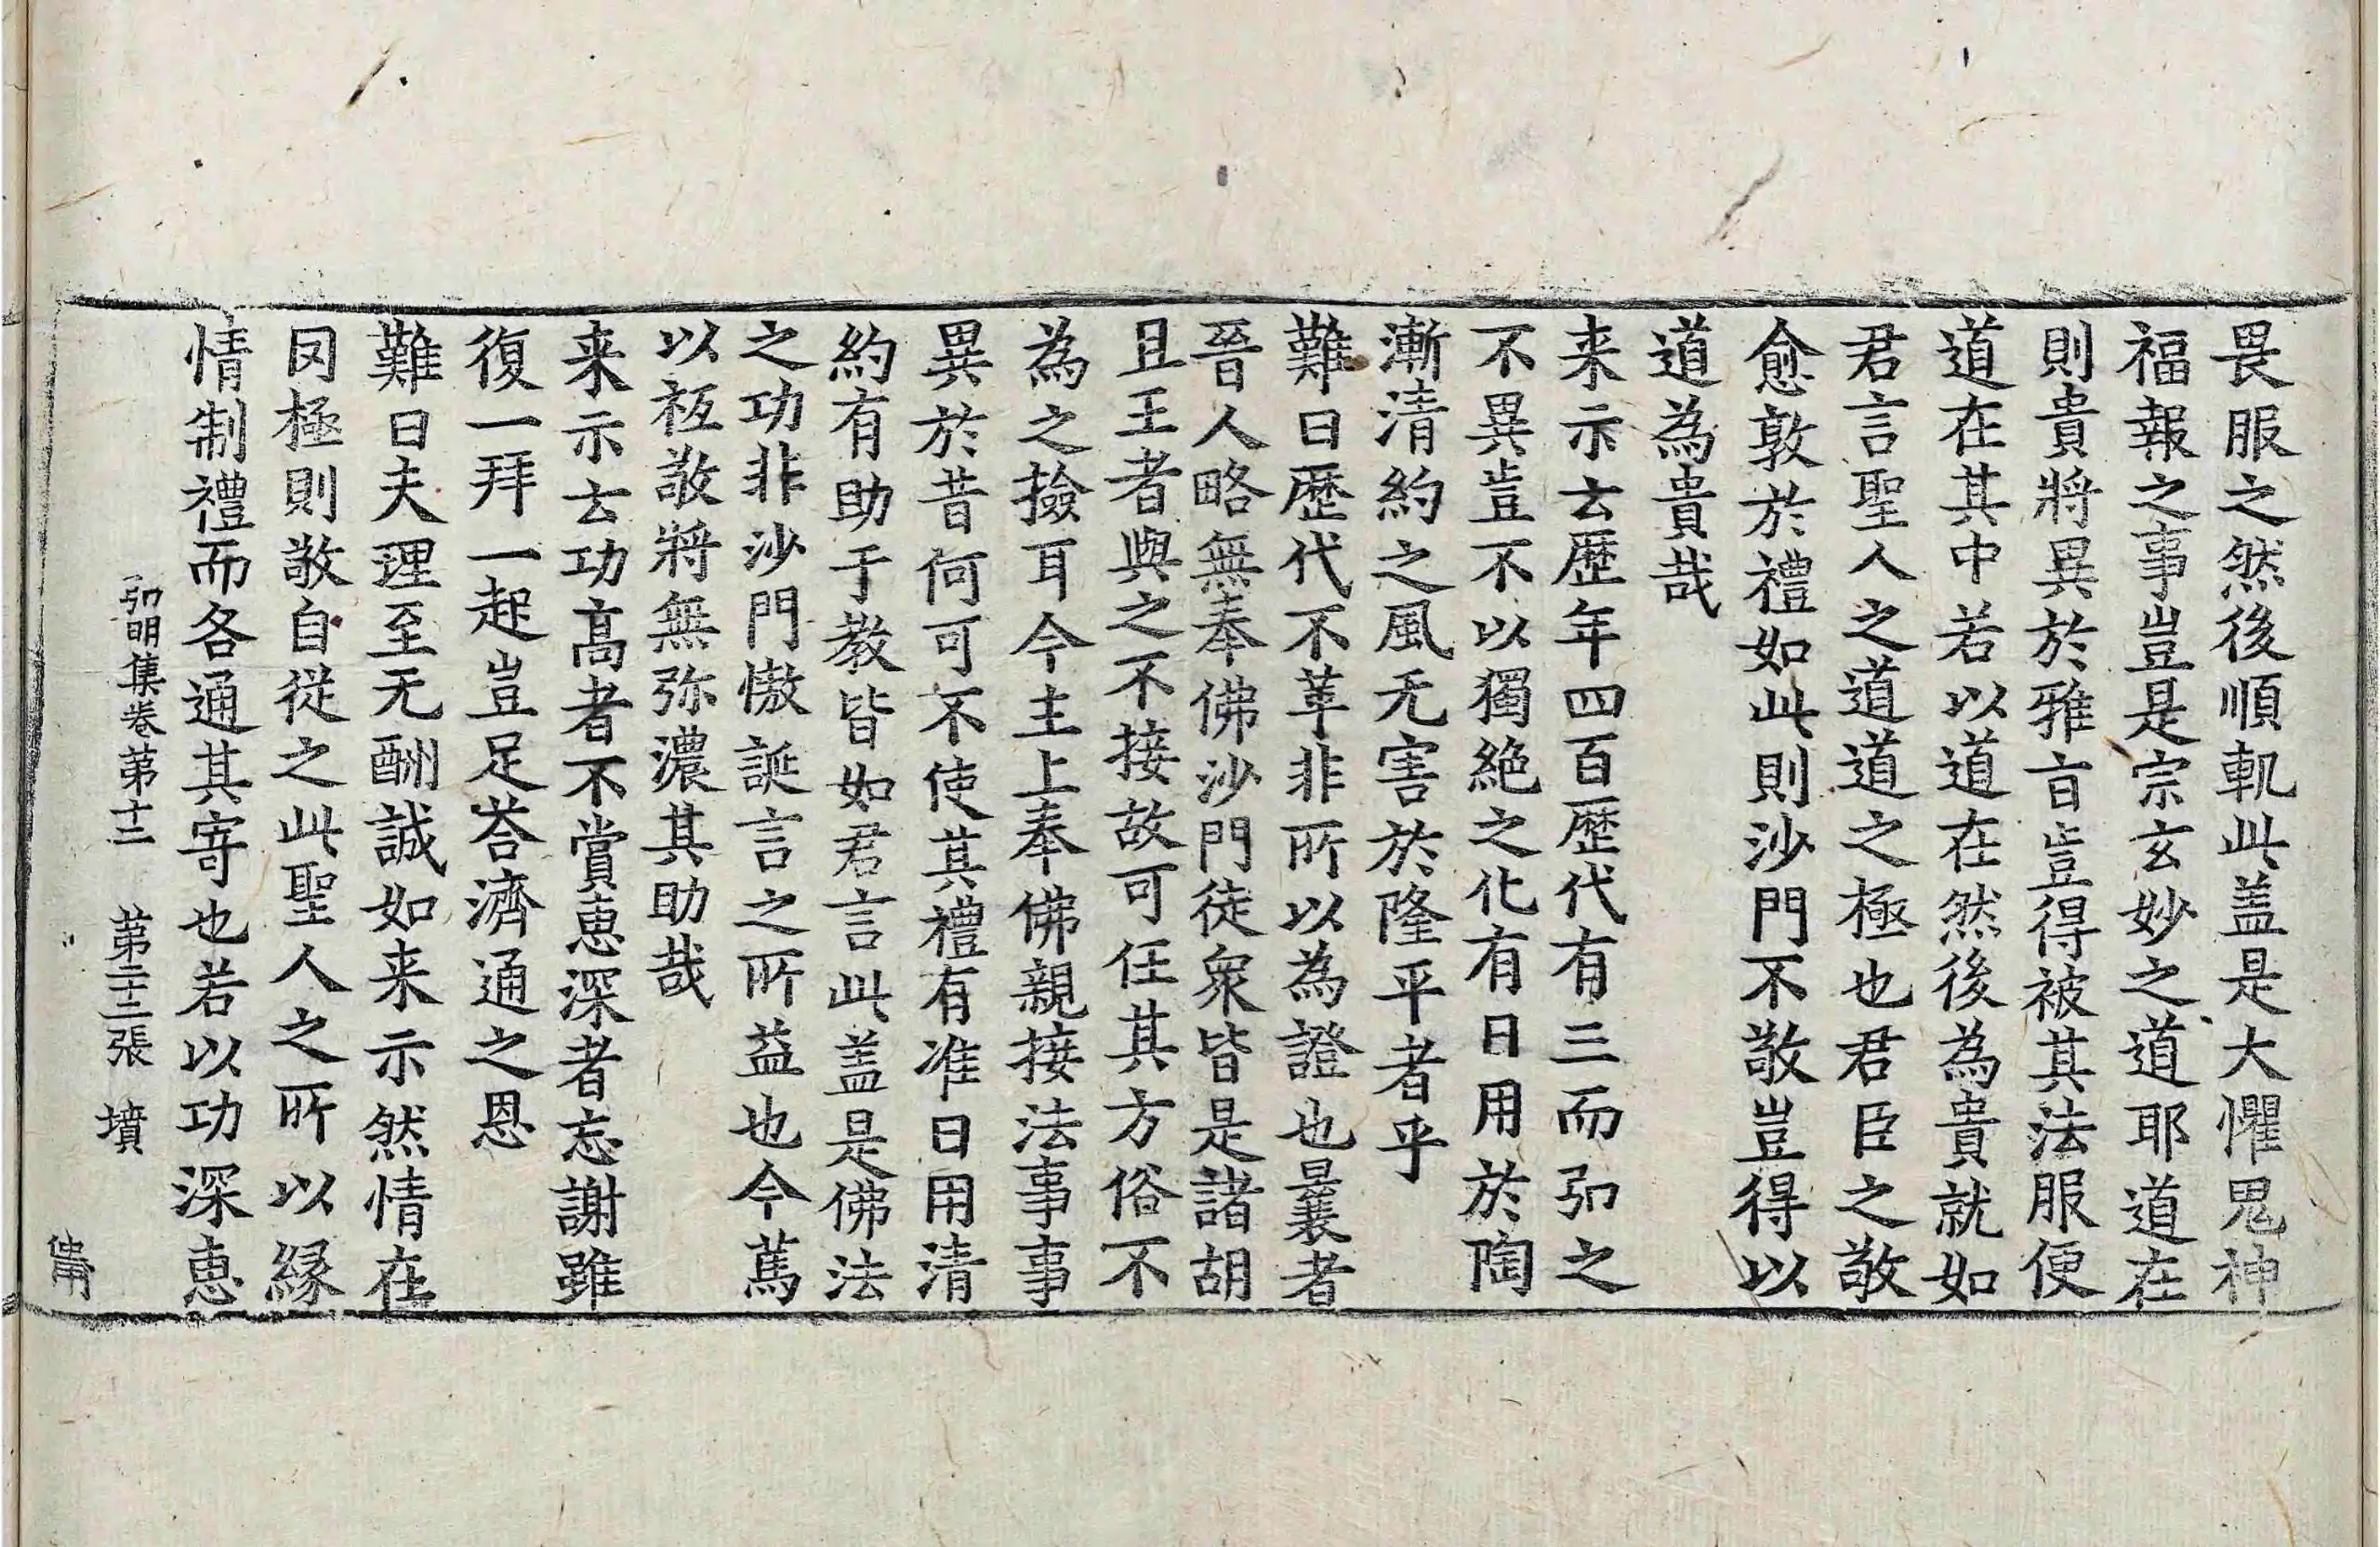 畏服之然後順軌此盖是大懼鬼神
福報之事豈是宗玄妙之道耶道在
則貴將異於雅㫖豈得被其法服便
道在其中若以道在然後為貴就如
君言聖人之道道之極也君臣之敬
愈敦於禮如此則沙門不敬豈得以
道為貴哉
来示云歷年四百歷代有三而弘之
不異豈不以獨絶之化有日用於陶
漸清約之風无害於隆平者乎
難曰歷代不革非所以為證也曩者
晉人略無奉佛沙門徒衆皆是諸胡
且王者與之不接故可任其方俗不
為之撿耳今主上奉佛親接法事事
異於昔何可不使其禮有准日用清
約有助于教皆如君言此盖是佛法
之功非沙門慠誕言之所益也今蔦
以祗敬將無弥濃其助哉
来示云功髙者不賞惠深者忘謝雖
復一拜一起豈足荅濟通之恩
難曰夫理至无酬誠如来示然情在
罔極則敬自從之此聖人之所以縁
情制禮而各通其寄也若以功深惠
弘明集卷第十二 第二十二張 墳